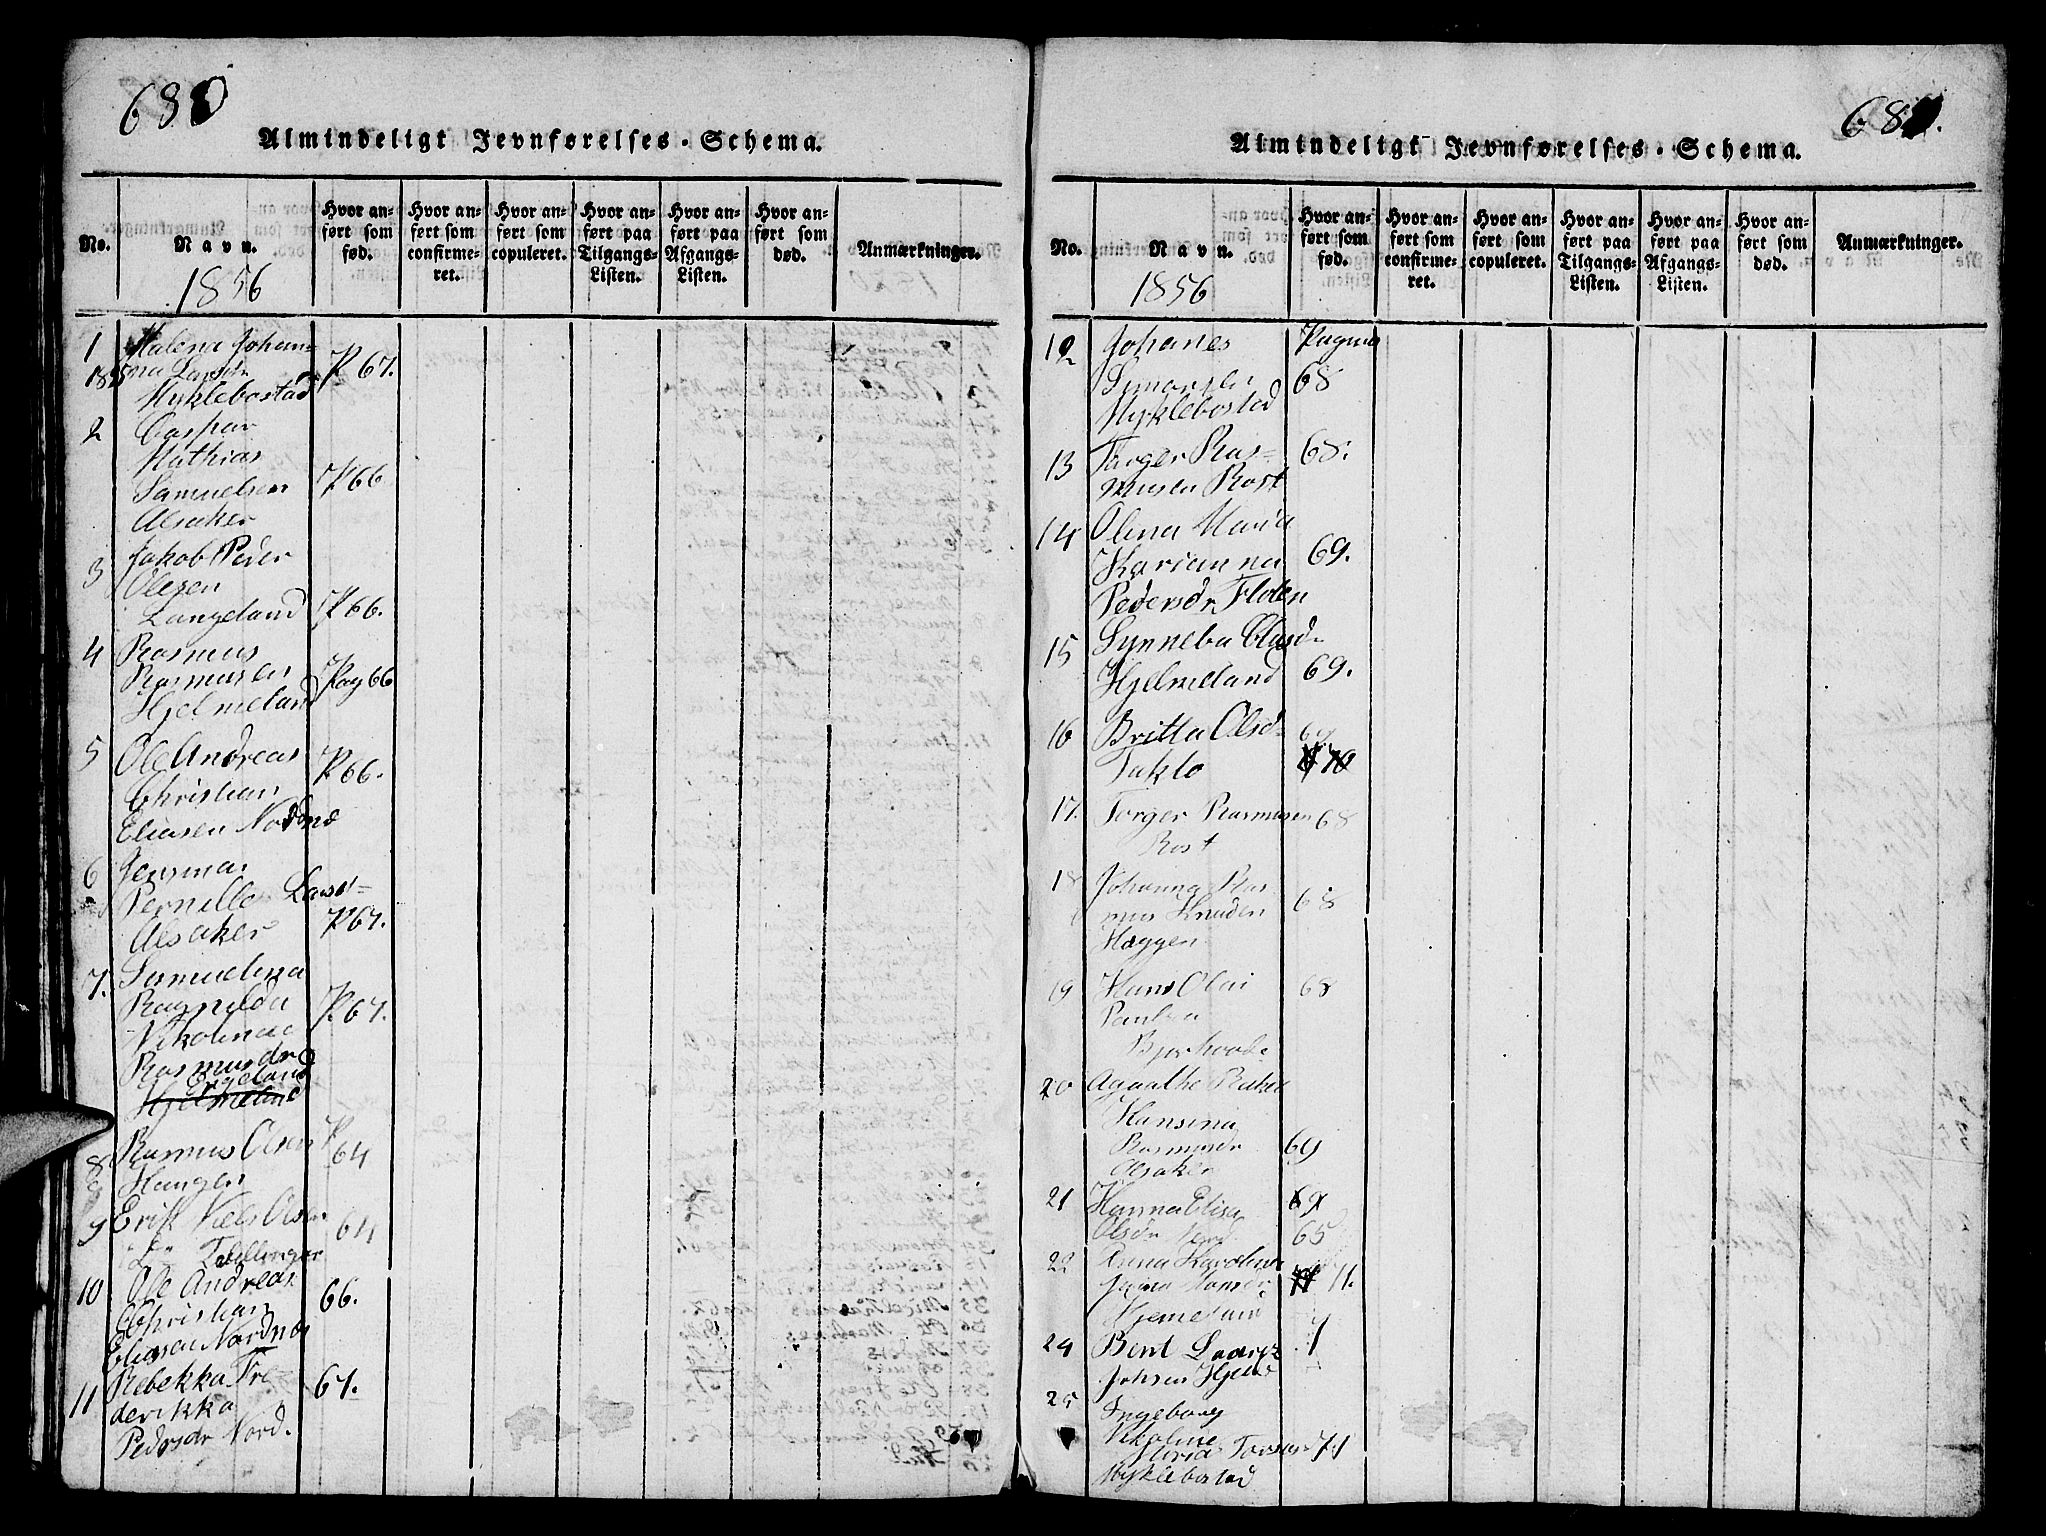 680
Almindeligt Jevnførelses-Schema.
No.
Navn.
Hvor anført som fød.
Hvor anført som confirmeret.
Hvor anført som copuleret.
Hvor anført paa Tilgangs-Listen.
Hvor anført paa Afgangs-Listen.
Hvor anført som død.
Anmærkninger.
1856
1 Malena Johan=
na Larsdr P 67.
Myklebostad
2 Caspar
Mathias
Samuelsen P 66
Alsaker
3 Jakob Peder
Olesen
Langeland P 66.
4 Rasmus
Rasmusen Pag 66
Hjelmeland
5 Ole Andreas
Christian P 66.
Eliasen Nordnæ
6 Jensina
Pernille Larsd=
Alsaker P 67.
7. Samuelina
Ragnilda P. 67.
Nikolinae
Rasmusdr
Engeland
Hjelmeland
8 Rasmus Olsen P
Haugen 64
9 Erik Niels Olsen 64
10 Ole Andreas
Christian 66.
Eliasen Nordnæs
11 Rebekka Fre 67.
derikka
Pedrsdr Nord.
681.
Almindeligt Jevnførelses-Schema.
No.
Navn.
Hvor anført som fød.
Hvor anført som confirmeret.
Hvor anført som copuleret.
Hvor anført paa Tilgangs-Listen.
Hvor anført paa Afgangs-Listen.
Hvor anført som død.
Anmærkninger.
1856
12 Johanes Pagina
68
Myklebostad
13 Torger Ras= 68.
musen Rost
14 Olena Maria
Karianna 69.
Pedersdr Floten
15 Synneva Olasd
Hjelmeland 69.
16 Britta Olsd 69
Taklo 70
17. Torger Rasmusen 68
Rost
18 Johanna Ras
mus Knuden 68
Haggen
19 Hans Olai 68
Paulsen
20 Agaathe Rakel
Hansina
Rasmusdr 69
Alsaker
21 Hanna Elisa 69
Olsdr Nord 65
22 Anna Karolina
71.
Hjemeland
24 Bent
Johsen Hjelm
25 Ingeborg
Nikoline
Maria 71
Myklebostad